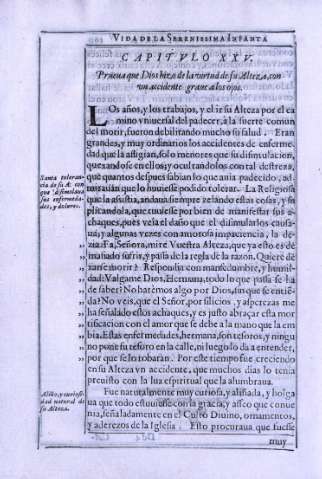 VIDA DE LA SERENISSIMA INFANTA
CAPITVLO XXV.
Prueua que Dios hizo de la virtud de su Alteza, con
vn accidente graue a los ojos.
LOs años, y los trabajos, y el ir su Alteza por el ca
mino vniuersal del padecer, à la suerte comun
del morir, fueron debilitando mucho su salud. Eran
grandes, y muy ordinarios los accidentes de enferme
dad que la astigian, solo menores que su disimulacion,
quexandose en ellos, y ocultandolos con tal destreza,
que quantos despues sabian lo que auia padecido, ad-
mirauan que lo huuiesse podido tolerar. La Religiosa
que la assistia, andaua siempre zelando estas cosas, y su
plicandola, que tuuiesse por bien de manifestar sus a-
chaques, pues veîa el daño que el disimularlos causa-
ua, y algunas vezes con amorosa impaciencia, la de-
zia: Ea, Señora, mire Vuestra Alteza, que ya esto es de
masiado sufrir, y passa de la regla de la razon. Quiere de
xarse morir? Respondia con mansedumbre, y humil-
dad: Valgame Dios, Hermana, todo lo que passa se ha
de saber? No harèmos algo por Dios, sin que se entie-
da? No veis, que el Señor, por silicios, y asperezas me
ha señalado estos achaques, y es justo abraçar esta mor
tificacion con el amor que se debe a la mano que la em
bia. Estas enfermedades, hermana, son tesoros, y ningu
no pone su tesoro en la calle, ni luego lo dà a entender,
por que se lo robaràn. Por este tiempo fue creciendo
en su Alteza vn accidente, que muchos dias lo tenia
preuisto con la luz espiritual que la alumbraua.
Fue naturalmente muy curiosa, y aliñada, y holga
ua que todo estuuiesse con la gracia, y asseo que conue
nia, señaladamente en el Culto Diuino, ornamentos,
y aderezos de la Iglesia. Esto procuraua que fuesse
muy
Santa toleran
cia de su A. con
que disimulaua
sus enfermeda-
des, y dolores.
Aliño, y curiosi-
dad natural de
su Alteza.